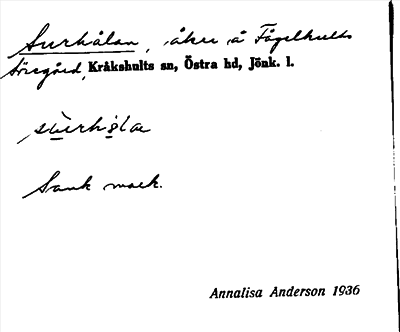 Surhålan, åker å Fågelhults
Sörgård, Kråkshults sn, Östra hd, Jönk. l.
Sank mark.
Annalisa Anderson 1936